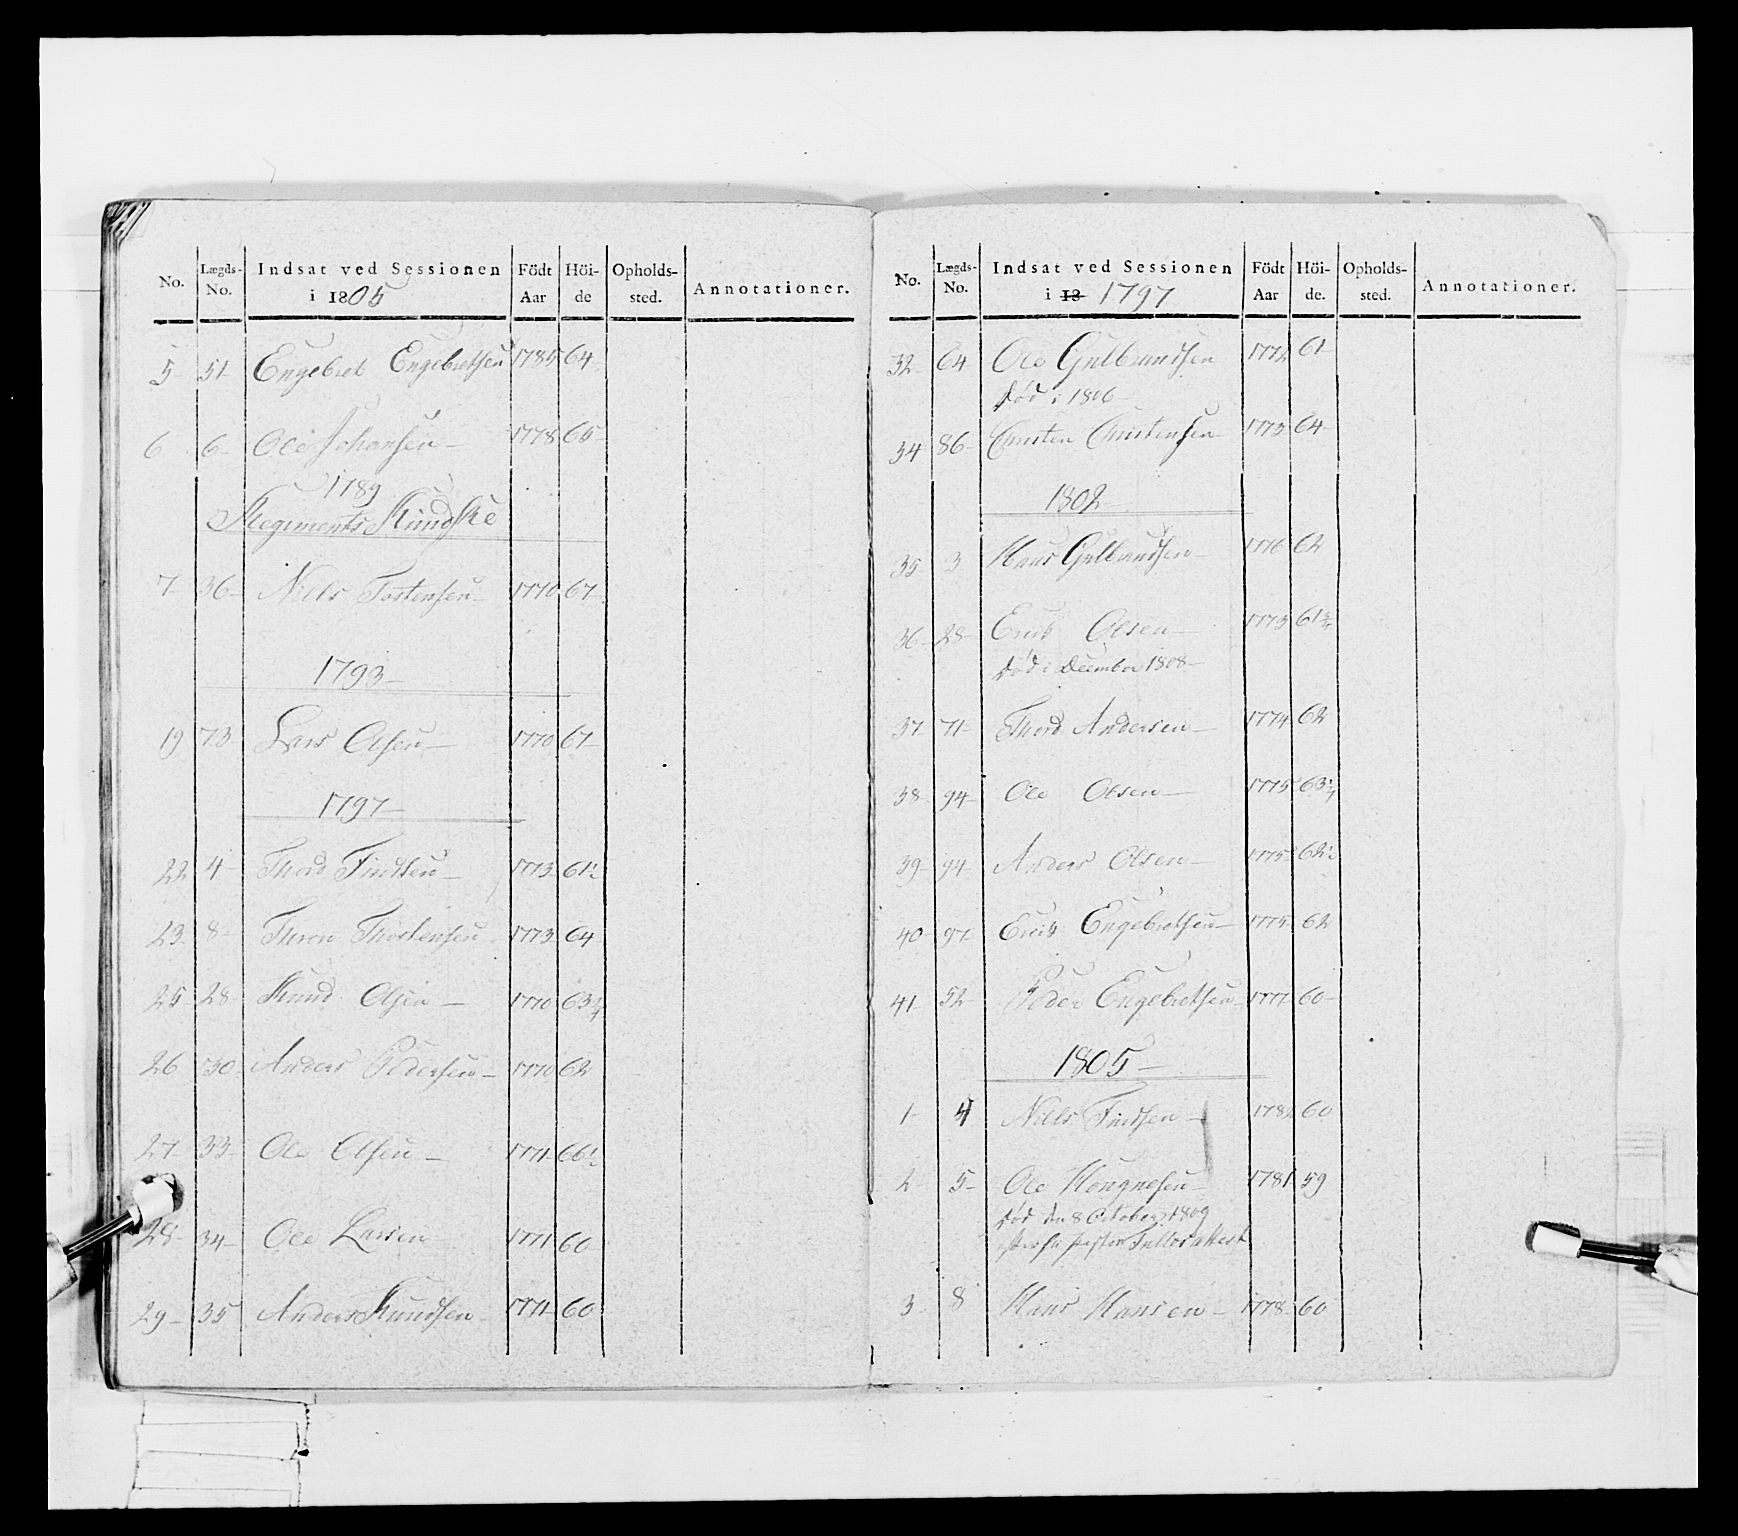 No. Lægds-No. Indsat ved Sessionen i 1805 Födt Aar Höi-de Opholds-sted. Annotationer.
5 51 Engebret Engebretsen 1785 64
6 6 Ole Johansen 1778 65
1789
Regiments Kundske
7 36 Niels Tostensen 1770 67
1793
19 73 Lars Olsen 1770 67
1797
22 4 Thord Findsen 1773 61½
23 8 Thron Thostensen 1773 64
25 28 Knud Olsen 1770 63¼
26 30 Anders Pedersen 1770 62
27 33 Ole Olsen 1771 66½
28 34 Ole Larsen 1771 60
29 35 Anders Knudsen 1771 60
No. Lægds-No. Indsat ved Sessionen i 18 1797 Födt Aar Höi-de. Opholds-sted. Annotationer.
32 64 Ole Gulbrandsen 1772 61
död i 1806
34 86 Christen Christensen 1773 64
1802
35 3 Hans Gulbrandsen 1776 62
36 28 Erik Olsen 1773 61¾
död i December 1808
37 71 Thord Andersen 1774 62
38 94 Ole Olsen 1775 63¼
39 94 Anders Olsen 1775 62½
40 97 Erik Engebretsen 1775 62
41 52 Peder Engebretsen 1777 60
1805
1 4 Niels Findsen 1782 60
2 5 Ole Haagnesen 1781 59
död den 8 October 1809
attest
3 8 Hans Hansen 1778 60